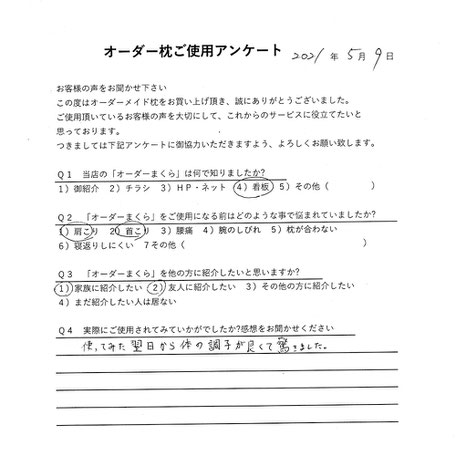 オーダー枕ご使用アンケート 2021 年 5 月 9 日
お客様の声をお聞かせ下さい
この度はオーダーメイド枕をお買い上げ頂き、誠にありがとうございました。
ご使用頂いているお客様の声を大切にして、これからのサービスに役立てたいと
思っております。
つきましては下記アンケートに御協力いただきますよう、よろしくお願い致します。
Q1 当店の「オーダーまくら」は何で知りましたか?
1）御紹介 2）チラシ 3）HP・ネット 4）看板 5）その他（ ）
Q2 「オーダーまくら」をご使用になる前はどのような事で悩まれていましたか?
1）肩こり 2）首こり 3）腰痛 4）腕のしびれ 5）枕が合わない
6）寝返りしにくい 7その他（ ）
Q3 「オーダーまくら」を他の方に紹介したいと思いますか?
1）家族に紹介したい 2）友人に紹介したい 3）その他の方に紹介したい
4）まだ紹介したい人は居ない
Q4 実際にご使用されてみていかがでしたか?感想をお聞かせください
使ってみた翌日から体の調子が良くて驚きました。